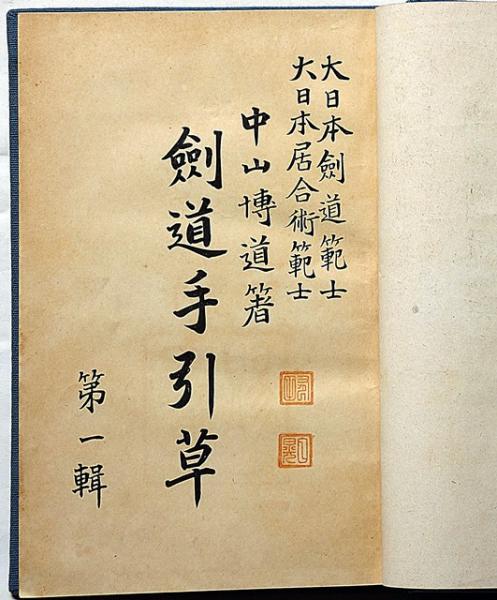 大日本劍道範士
大日本居合術範士
中山博道箸
劍道手引草
第一輯